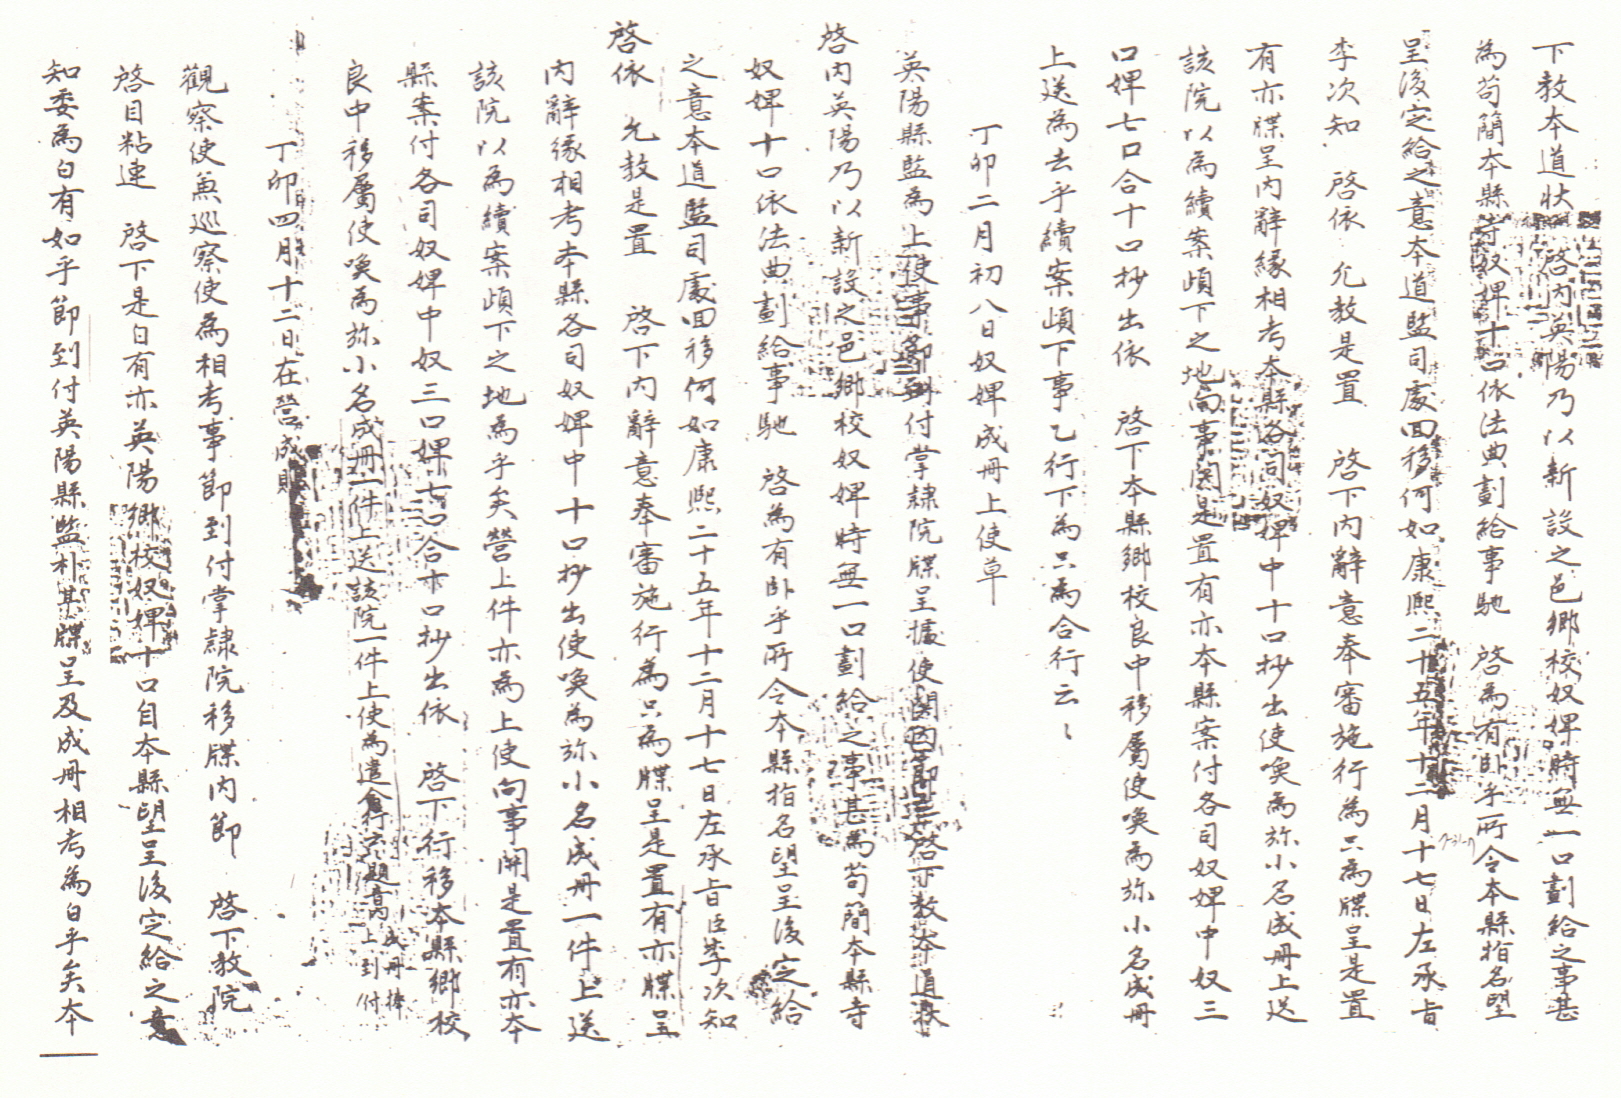 下教本道狀啓內英陽乃以新設之邑鄕校奴婢時無一口劃給之事甚
為苟簡本縣寺奴婢十口依法典劃給事馳 啓為有臥乎所令本縣指名望
呈後定給之意本道監司處回移何如康熙二十五年十二月十七日左承旨
李次知 啓依 允教是置 啓下內辭意奉審施行為只為牒呈是置
有亦牒呈內辭緣相考本縣各司奴婢中十口抄出使喚為旀小名成冊上送
該院以為續案頉下之地向事関是置有亦本縣案付各司奴婢中奴三
口婢七口合十口抄出依 啓下本縣鄕校良中移屬使喚為旀小名成冊
上送為去乎續案頉下事乙行下為只為合行云〻
丁卯二月初八日奴婢成冊上使草
英陽縣監為上使事節到付掌隷院牒呈據使関內節 啓下教本道狀
啓內英陽乃以新設之邑鄕校奴婢時無一口劃給之事甚為苟簡本縣寺
奴婢十口依法典劃給事馳 啓為有臥乎所令本縣指名望呈後定給
之意本道監司處回移何如康熙二十五年十二月十七日左承旨臣李次知
啓依 允教是置 啓下內辭意奉審施行為只為牒呈是置有亦牒呈
內辭緣相考本縣各司奴婢中十口抄出使喚為旀小名成冊一件上送
該院以為續案頉下之地為乎矣營上件亦為上使向事関是置有亦本
縣案付各司奴婢中奴三口婢七口合十口抄出依 啓下行移本縣鄕校
良中移屬使喚為旀小名成冊一件上送該院一件上使為遣合行 題
成冊捧
上到付
丁卯四月十二日在營成貼
觀察使兼巡察使為相考事節到付掌隷院移牒內節 啓下教院
啓目粘連 啓下是白有亦英陽鄕校奴婢十口自本縣望呈後定給之意
知委為白有如乎節到付英陽縣監朴某牒呈及成冊相考為白乎矣本